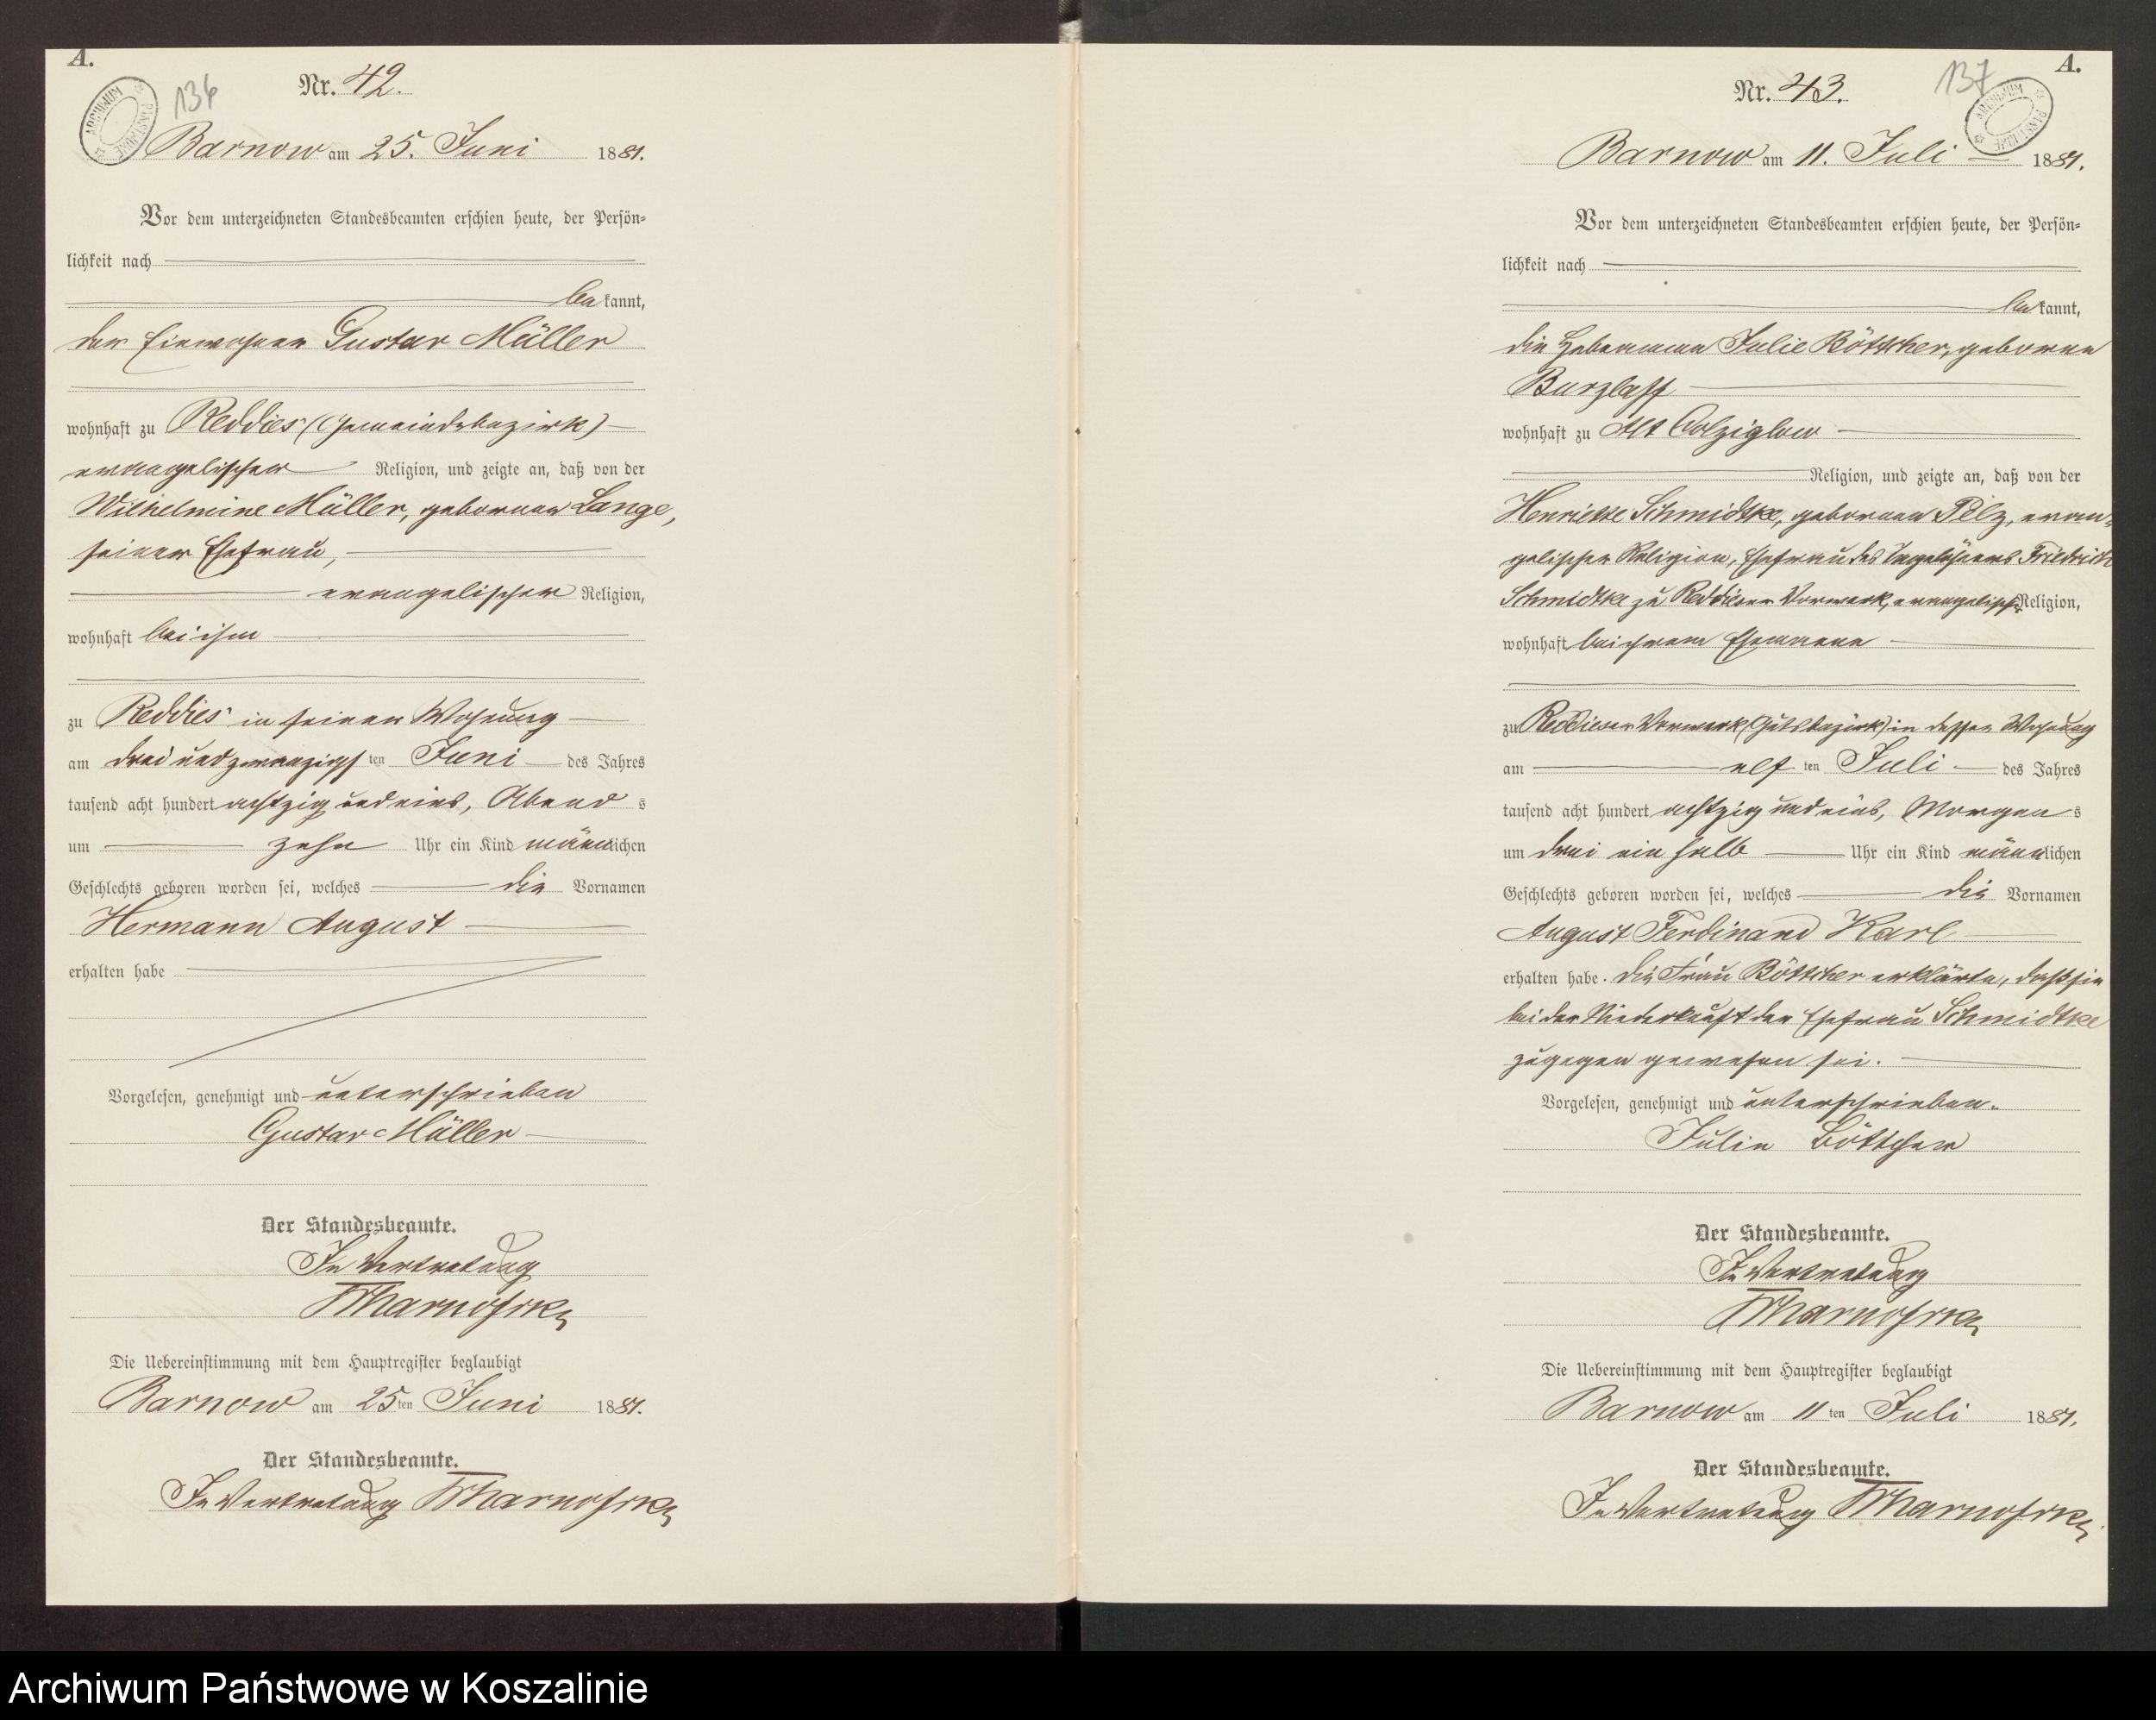 A.
136
Nr. 42.
Barnow am 25. Juni 1881.
Vor dem unterzeichneten Standesbeamten erschien heute, der Persön-
lichkeit nach
be kannt,
der Einwohner Gustav Müller
wohnhaft zu Reddies (Gemeindebezirk)
evangelischer Religion, und zeigte an, daß von der
Wilhelmine Müller, geborenen Lange,
seiner Ehefrau,
evangelischer Religion,
wohnhaft bei ihm
zu Reddies in seiner Wohnung
am drei und zwanzigsten Juni des Jahres
tausend acht hundert achtzig und eins, Abend s
um zehn Uhr ein Kind männlichen
Geschlechts geboren worden sei, welches die Vornamen
Hermann August
erhalten habe
Vorgelesen, genehmigt und unterschrieben
Gustav Müller
Der Standesbeamte.
In Vertretung
Die Uebereinstimmung mit dem Hauptregister beglaubigt
Barnow am 25ten Juni 1881.
Der Standesbeamte.
In Vertretung
A.
137
ARCHIWUM PAŃSTWOWE
Nr. 43.
Barnow am 11. Juli 1881.
Vor dem unterzeichneten Standesbeamten erschien heute, der Persön-
lichkeit nach
be kannt,
die Hebamme Julie Böttcher, geborene
Burzlaff
wohnhaft zu Alt Colziglow
Religion, und zeigte an, daß von der
Henriette Schmidtke, geborenen Pelz, evan-
gelischer Religion, Ehefrau des Tagelöhners Friedrich
Schmidtke zu Reddieser Vorwerk, evangelischer Religion,
wohnhaft bei ihrem Ehemanne
zu Reddieser Vorwerk (Gutsbezirk) in dessen Wohnung
am elf ten Juli des Jahres
tausend acht hundert achtzig und eins, Morgen s
um drei ein halb Uhr ein Kind männlichen
Geschlechts geboren worden sei, welches die Vornamen
August Ferdinand Karl
erhalten habe. Die Frau Böttcher erklärte, daß sie
bei der Niederkunft der Ehefrau Schmidtke
zugegen gewesen sei.
Vorgelesen, genehmigt und unterschrieben.
Julie Böttcher
Der Standesbeamte.
In Vertretung
Die Uebereinstimmung mit dem Hauptregister beglaubigt
Barnow am 11 ten Juli 1881.
Der Standesbeamte.
In Vertretung
Archiwum Państwowe w Koszalinie